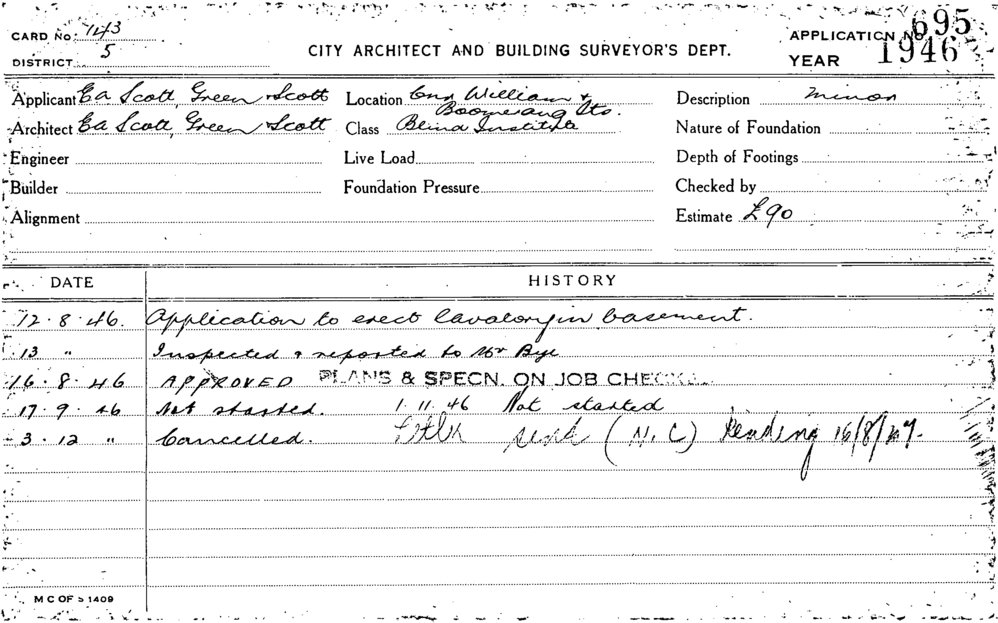 CARD No. 143
DISTRICT 5
CITY ARCHITECT AND BUILDING SURVEYOR'S DEPT.
APPLICATION No 695
YEAR 1946
Applicant Ea Scott, Green & Scott
Architect Ea Scott, Green & Scott
Engineer
Builder
Alignment
Location Cnr William &
Boomerang Sts.
Class Blind Institute
Live Load
Foundation Pressure
Description minor
Nature of Foundation
Depth of Footings
Checked by
Estimate £90
DATE HISTORY
12.8.46. Application to erect lavatory in basement.
13 " Inspected & reported to Mr Bye
16.8.46 APPROVED PLANS & SPECN. ON JOB
17.9.46 Not started. 1.11.46 Not started
3.12 " Cancelled. (N.C) Pending 16/8/47.
M C OF S 1409